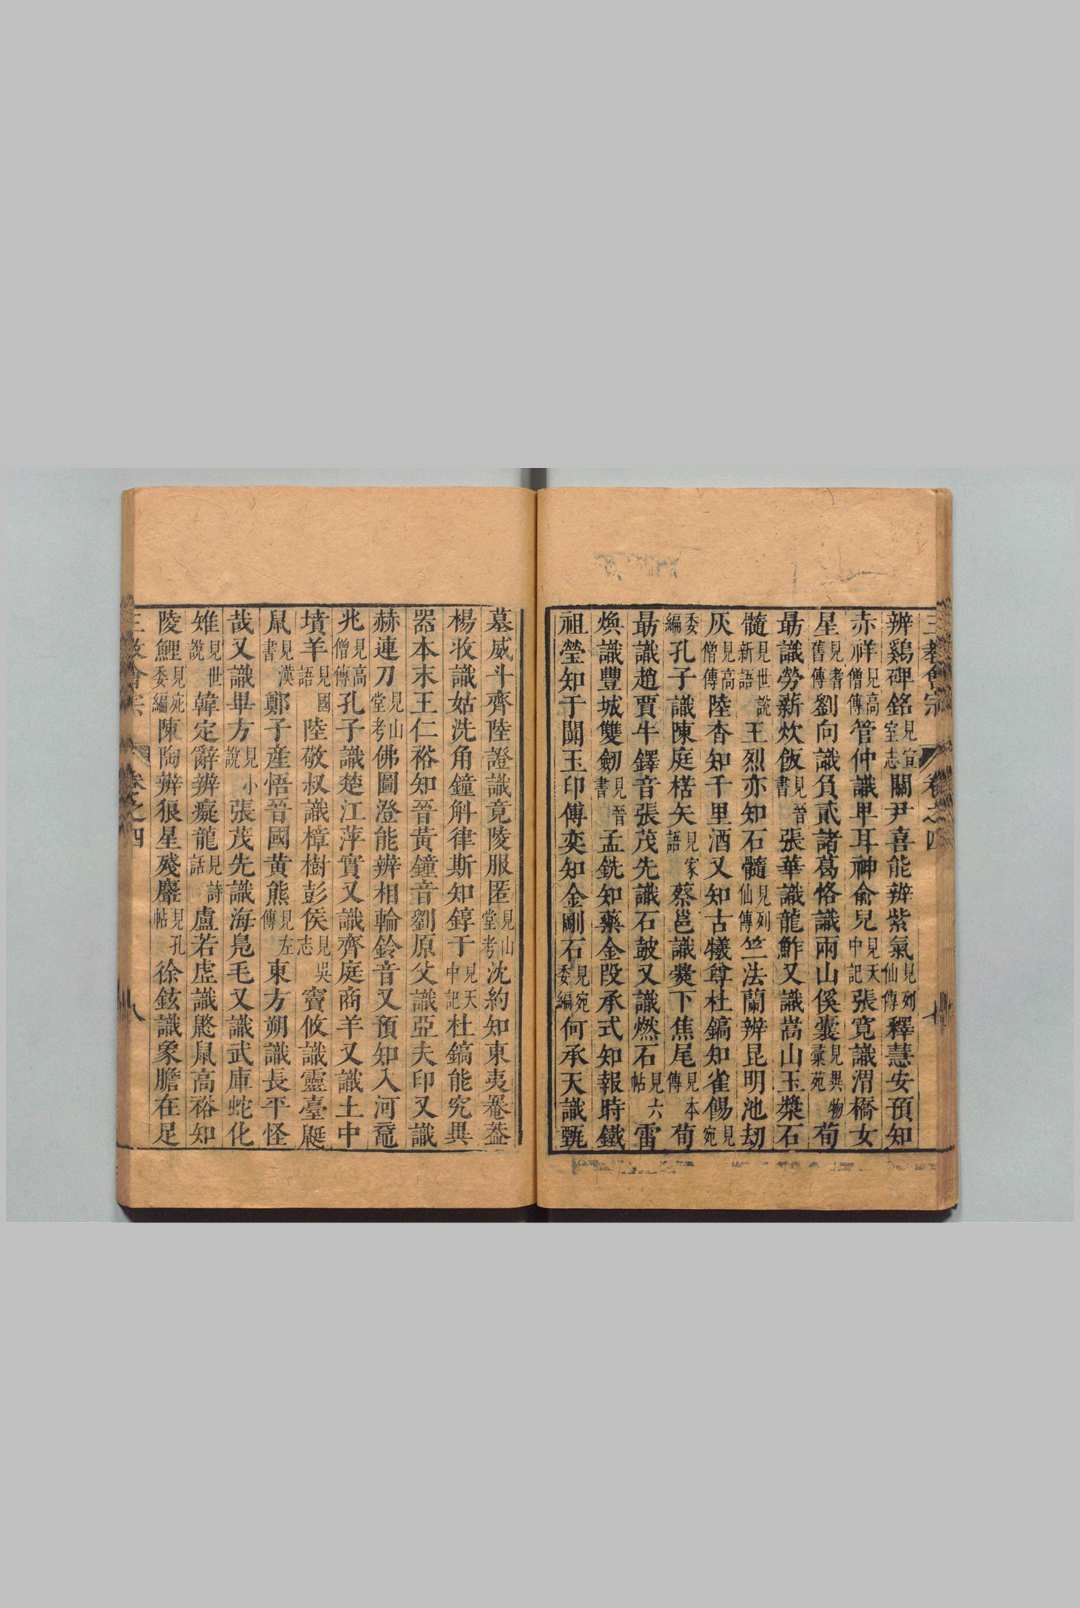 三教會宗 卷之四
辨鷄碑銘見宣室志關尹喜能辨紫氣見列仙傳釋慧安預知
赤祥見高僧傳管仲識卑耳神俞兒見天中記張寬識渭橋女
星見耆舊傳劉向識負貳諸葛恪識兩山傒囊見異物彙苑荀
勗識勞薪炊飯見晉書張華識龍鮓又識嵩山玉漿石
髓見世說新語王烈亦知石髓見列仙傳竺法蘭辨昆明池劫
灰見高僧傳陸杳知千里酒又知古犧尊杜鎬知雀餳見宛
委編孔子識陳庭楛矢見家語蔡邕識爨下焦尾見本傳荀
勗識趙賈牛鐸音張茂先識石鼓又識燃石見六帖雷
煥識豐城雙劒見晉書孟銑知藥金段承式知報時鐵
祖瑩知于闐玉印傅奕知金剛石見宛委編何承天識甄
墓威斗齊陸證識竟陵服匿見山堂考沈約知東夷罨葢
楊收識姑洗角鐘斛律斯知錞于見天中記杜鎬能究異
器本末王仁裕知晉黃鐘音劉原父識亞夫印又識
赫連刀見山堂考佛圖澄能辨相輪鈴音又預知入河黿
兆見高僧傳孔子識楚江萍實又識齊庭商羊又識土中
墳羊見國語陸敬叔識樟樹彭侯見吳志竇攸識靈臺鼮
鼠見漢書鄭子產悟晉國黃熊見左傳東方朔識長平怪
哉又識畢方見小說張茂先識海鳧毛又識武庫蛇化
雉見世說韓定辭辨癡龍見詩話盧若虛識鼮鼠高裕知
陵鯉見宛委編陳陶辨狼星殘麞見孔帖徐鉉識象膽在足
三教會宗 卷之四 八